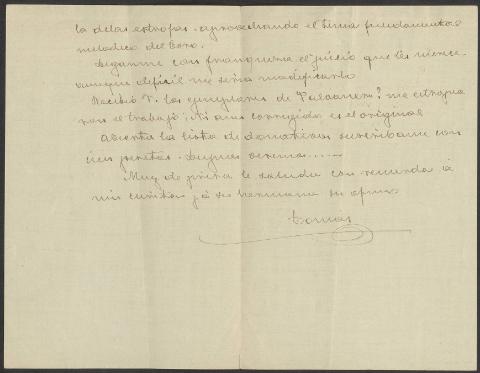 la de las estrofas. aprovechando el tema fundamental
melodico del Coro.
Diganme con franqueza el juicio que les merece
aunque dificil me sería modificarlo
Recibió V. los ejemplares de ? me estropea
ron el trabajo; Ni aun corregida es el original
Abierta la lista de donativos suscribame con
cien pesetas. Despues veremos......
Muy de prisa le saluda con recuerdos á
mis y á su hermana su afmo
Tomás